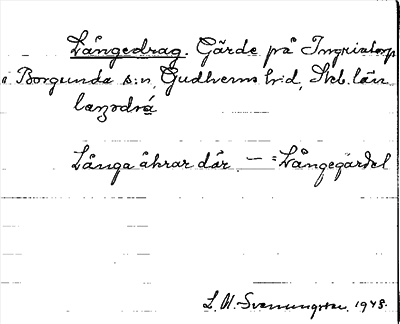 Långedrag. Gärde på Ingristorp
i Borgunda s:n, Gudhems hd, Skb. län
laŋ̣odrá
Långa åkrar där. — = Långegärdet
L. A. Svenungsson. 1948.